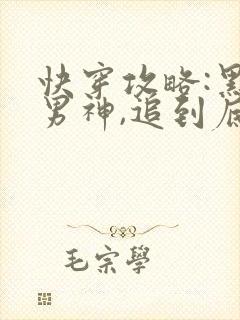 快穿攻略:黑
男神,追到底
毛宗學